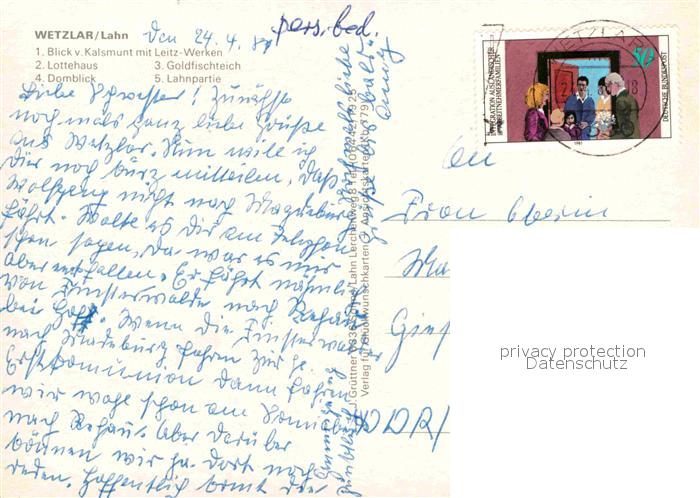 WETZLAR/Lahn
1. Blick v. Kalsmunt mit Leitz-Werken
2. Lottehaus 3. Goldfischteich
4. Domblick 5. Lahnpartie
Den 24.4.
pers. bed.
Liebe Schwester! Zunächst
nochmals ganz liebe Grüße
aus Wetzlar. Nun will ich
Dir noch kurz mitteilen, daß
Wolfgang nicht nach Magdeburg
fährt. Wollte es Dir am Telephon
schon sagen, da war es mir
aber entfallen. Er fährt nämlich
von Finsterwalde nach Rehau
bei Hof. Wenn die Finsterwalder
nach Magdeburg fahren zur hl.
Erstkommunion dann fahren
wir wohl schon am Sonnabend
nach Rehau. Aber darüber
können wir ja dort noch
reden. Hoffentlich kommt der
herzliche
Grüße
bald
J. Grüttner
Lahn Lerchenweg 8
Verlag für Glückwunschkarten
Ansichtskarten
INTEGRATION AUSLÄNDISCHER
ARBEITNEHMERFAMILIEN
50
DEUTSCHE BUNDESPOST
1981
WETZLAR
An
Frau Oberin
DDR/
privacy protection
Datenschutz